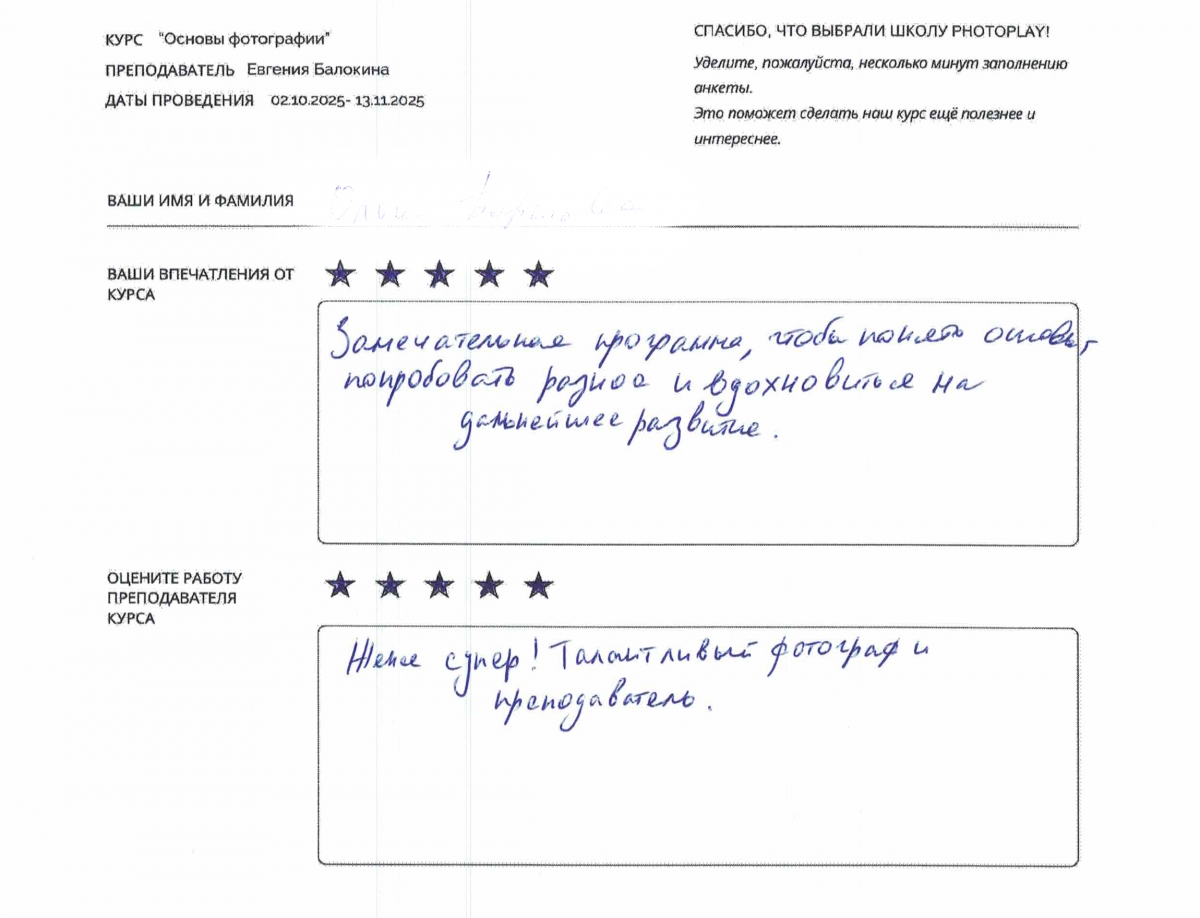 КУРС "Основы фотографии"
ПРЕПОДАВАТЕЛЬ Евгения Балокина
ДАТЫ ПРОВЕДЕНИЯ 02.10.2025- 13.11.2025
СПАСИБО, ЧТО ВЫБРАЛИ ШКОЛУ PHOTOPLAY!
Уделите, пожалуйста, несколько минут заполнению
анкеты.
Это поможет сделать наш курс ещё полезнее и
интереснее.
ВАШИ ИМЯ И ФАМИЛИЯ
ВАШИ ВПЕЧАТЛЕНИЯ ОТ
КУРСА
Замечательная программа, чтобы понять основы,
попробовать разное и вдохновиться на
дальнейшее развитие.
ОЦЕНИТЕ РАБОТУ
ПРЕПОДАВАТЕЛЯ
КУРСА
Женя супер! Талантливый фотограф и
преподаватель.